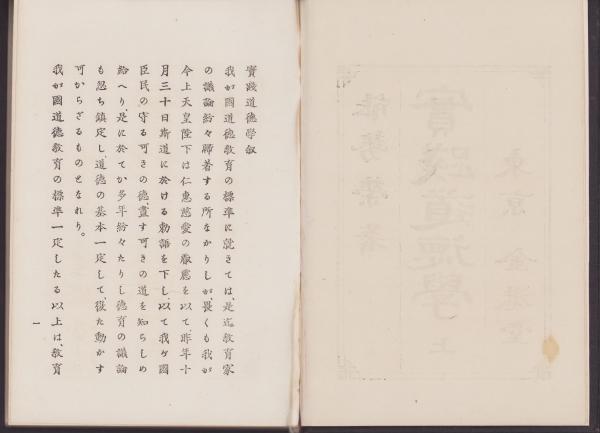 實踐道德學叙
我が國道德教育の標準に就きては、是迄教育家
の議論紛々歸著する所なかりしが、畏くも我が
今上天皇陛下は仁惠慈愛の叡慮を以て、昨年十
月三十日斯道に於ける勅語を下し、以て我が國
臣民の守る可きの德、盡す可きの道を知らしめ
給へり、是に於てか多年紛々たりし德育の議論
も忽ち鎭定し、道德の基本一定して、復た動かす
可からざるものとなれり。
我が國道德教育の標準一定したる以上は、教育
一